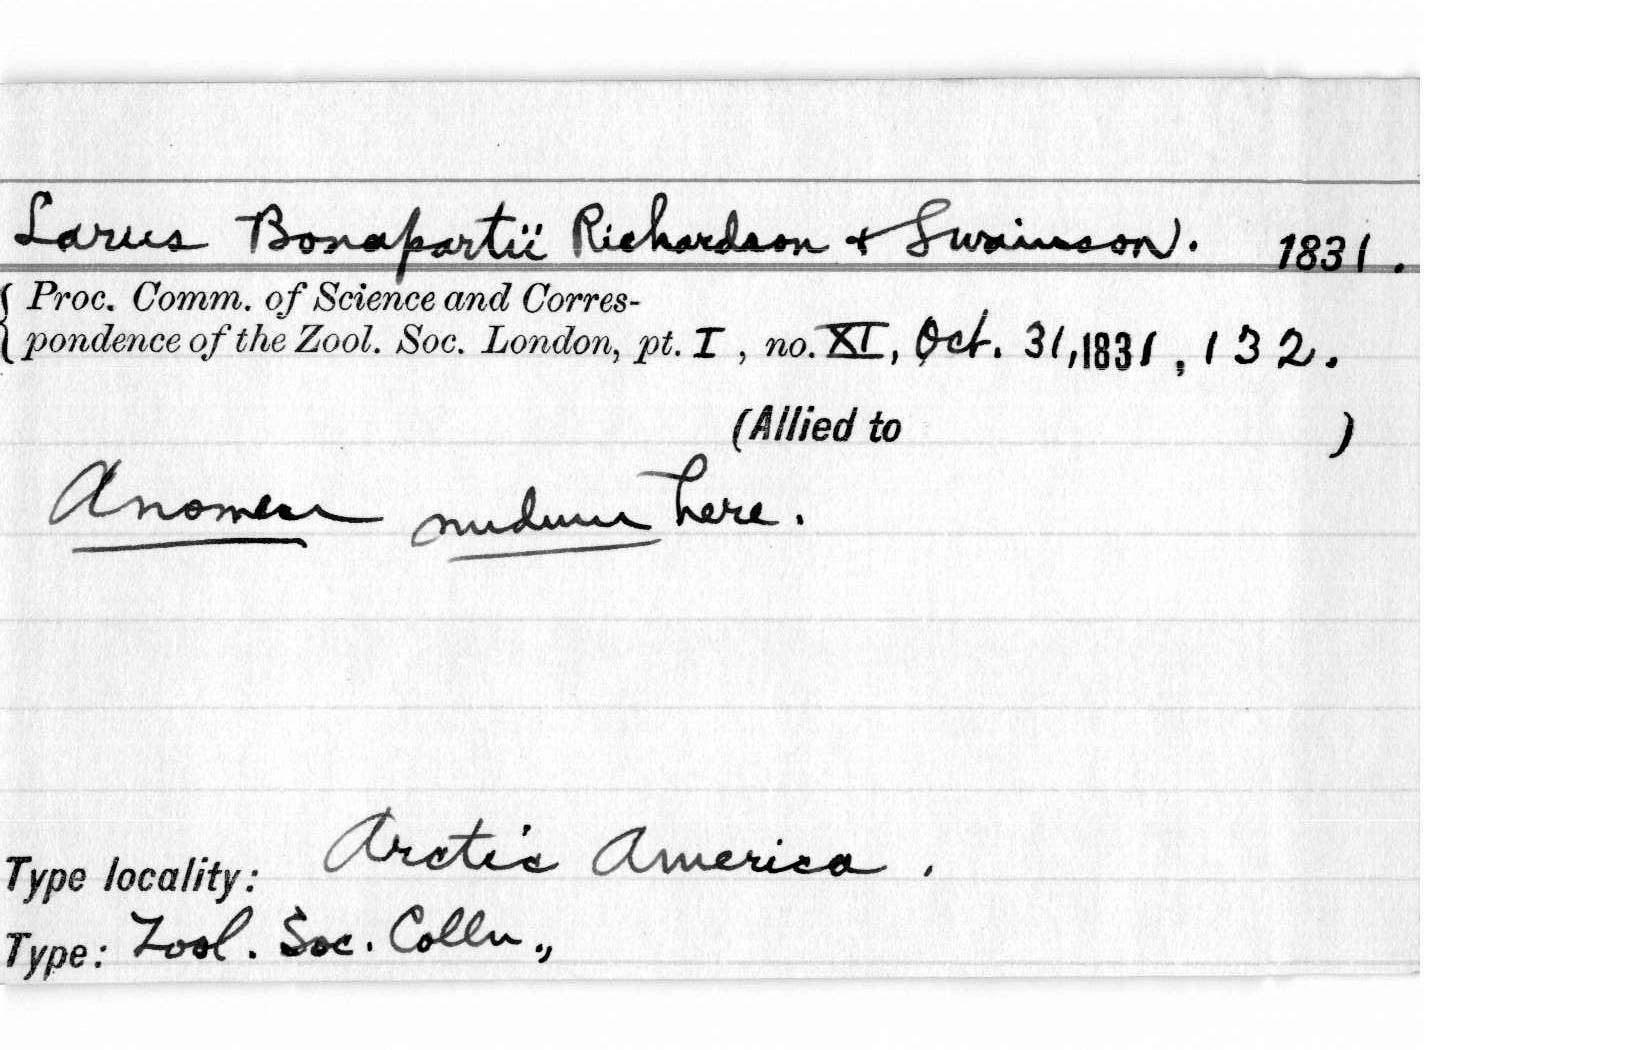 Larus Bonapartii Richardson & Swainson. 1831.
Proc. Comm. of Science and Corres-
pondence of the Zool. Soc. London, pt. I, no. XI, Oct. 31, 1831, 132.
(Allied to )
A nomen nudum here.
Type locality: Arctic America.
Type: Zool. Soc. Colln.,